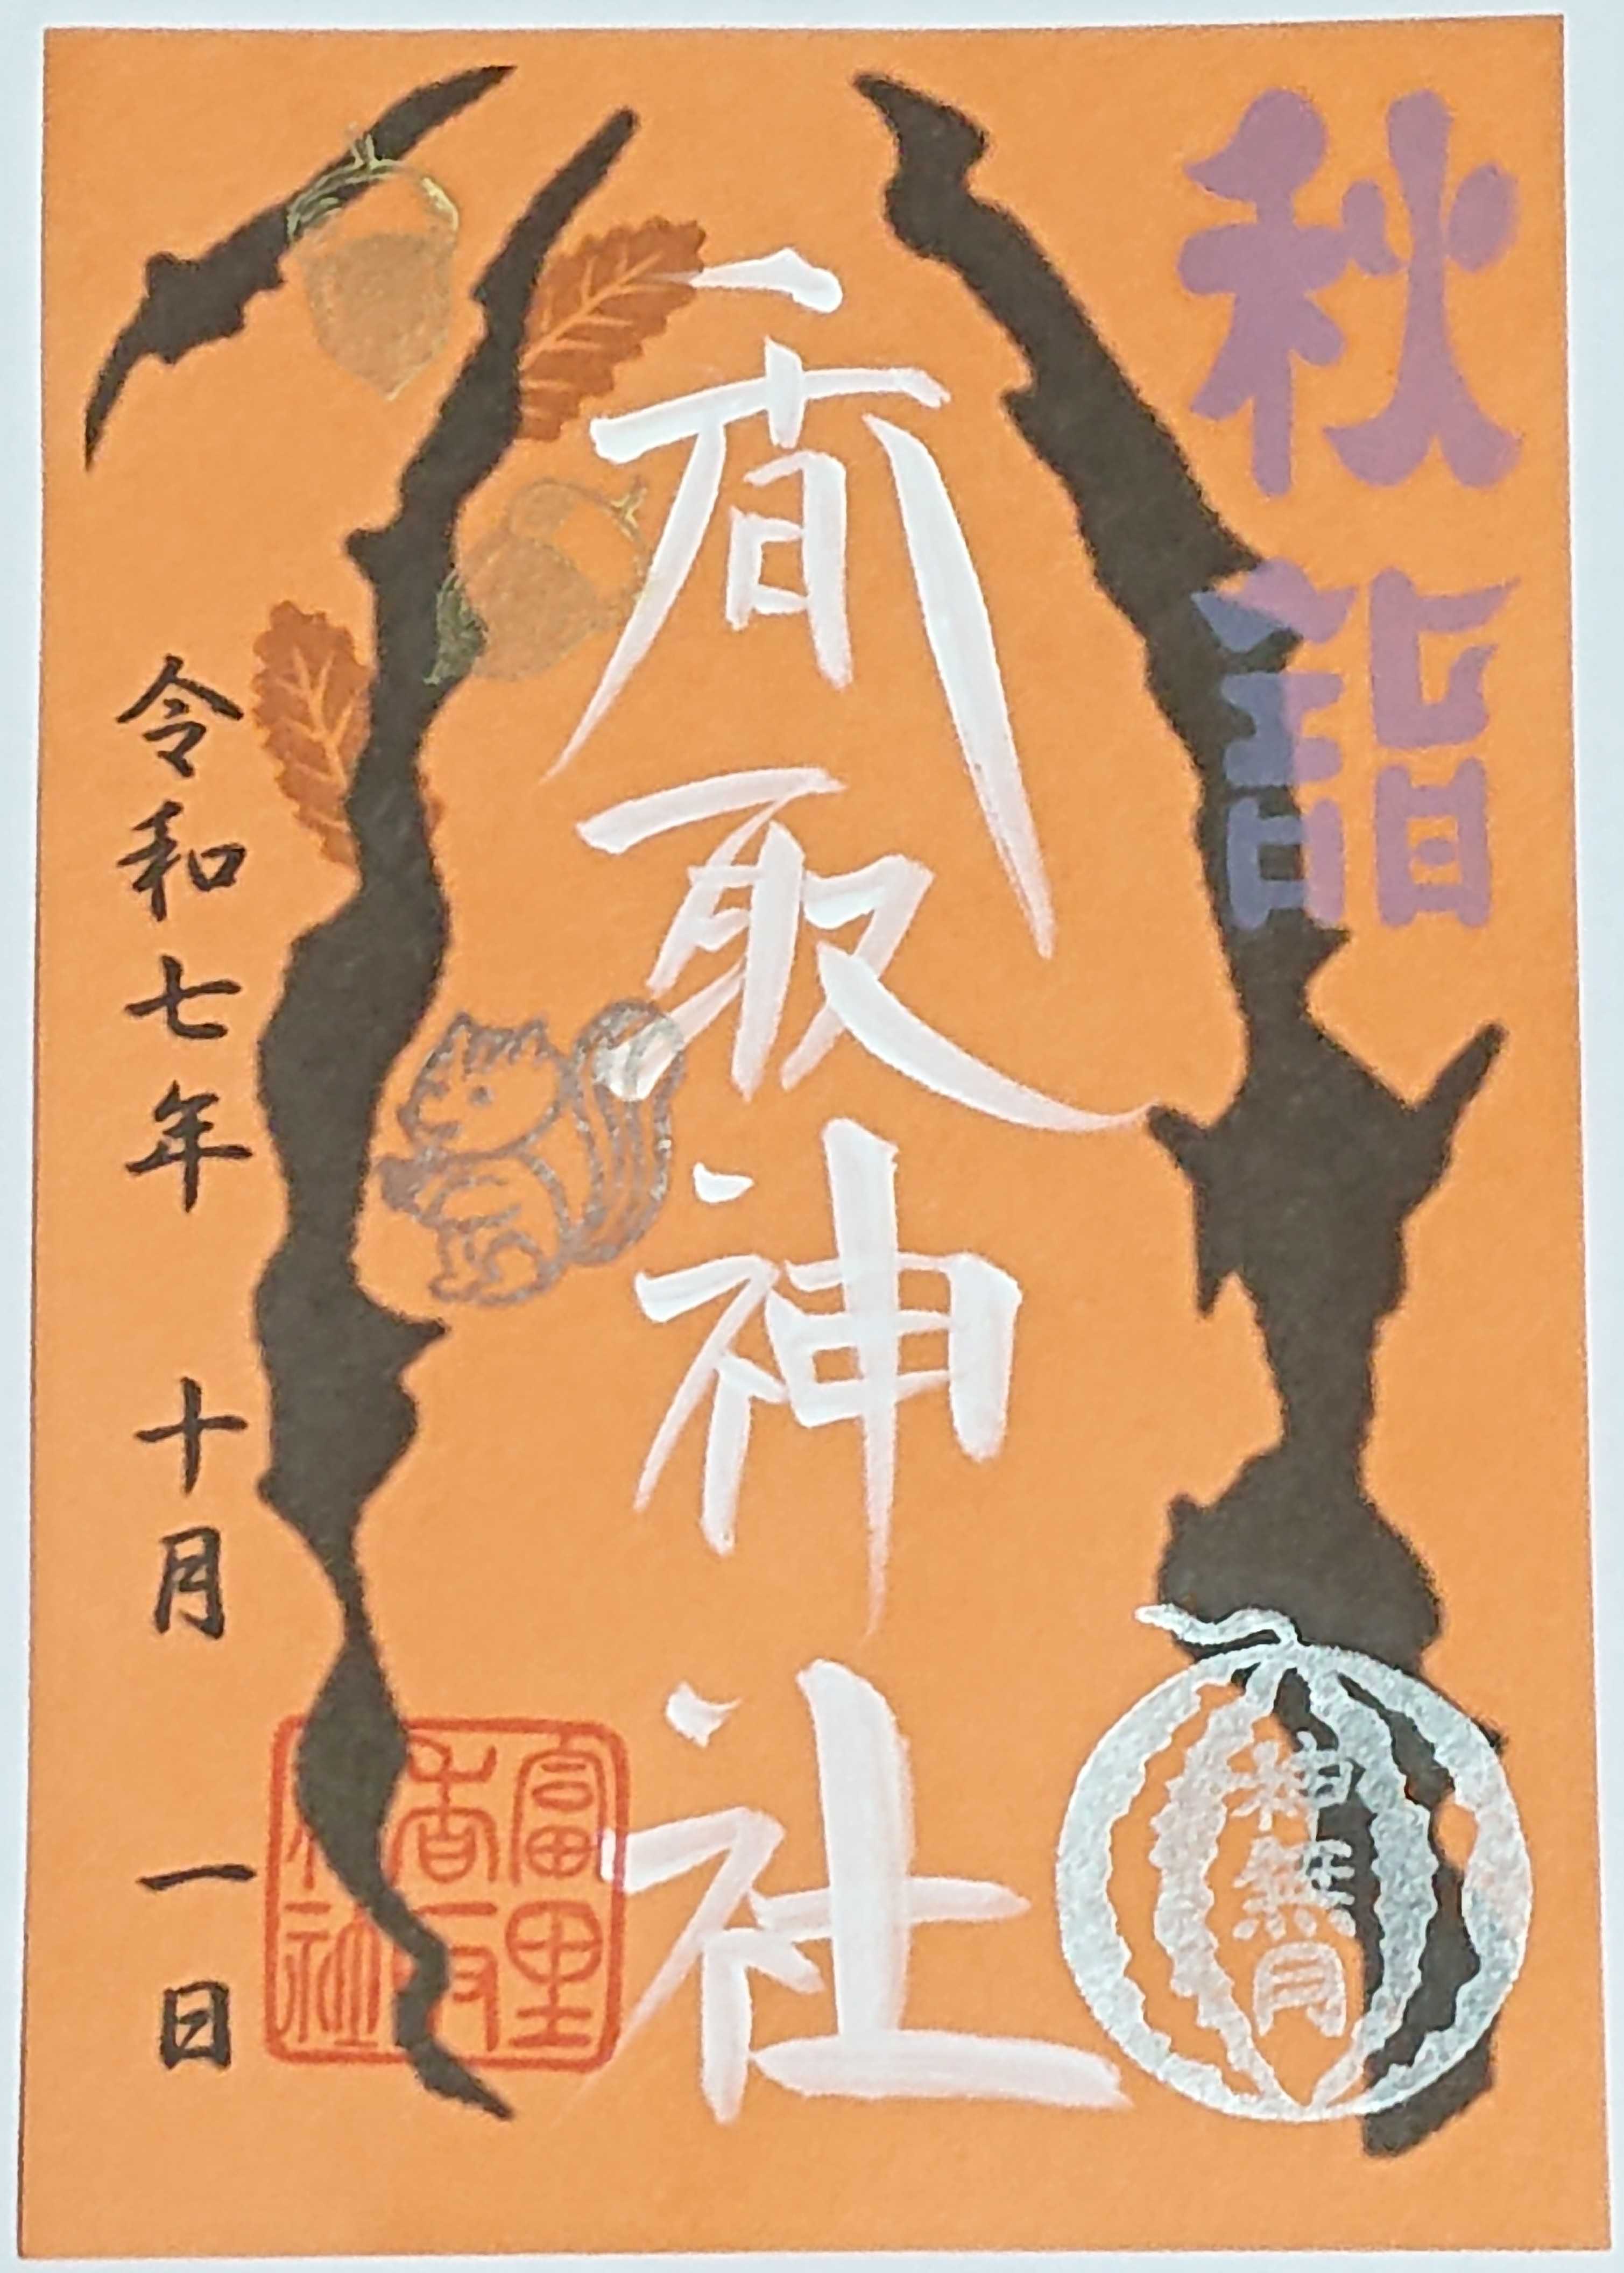 秋詣
神無月
香取神社
富里
香取
神社
令和七年 十月 一日